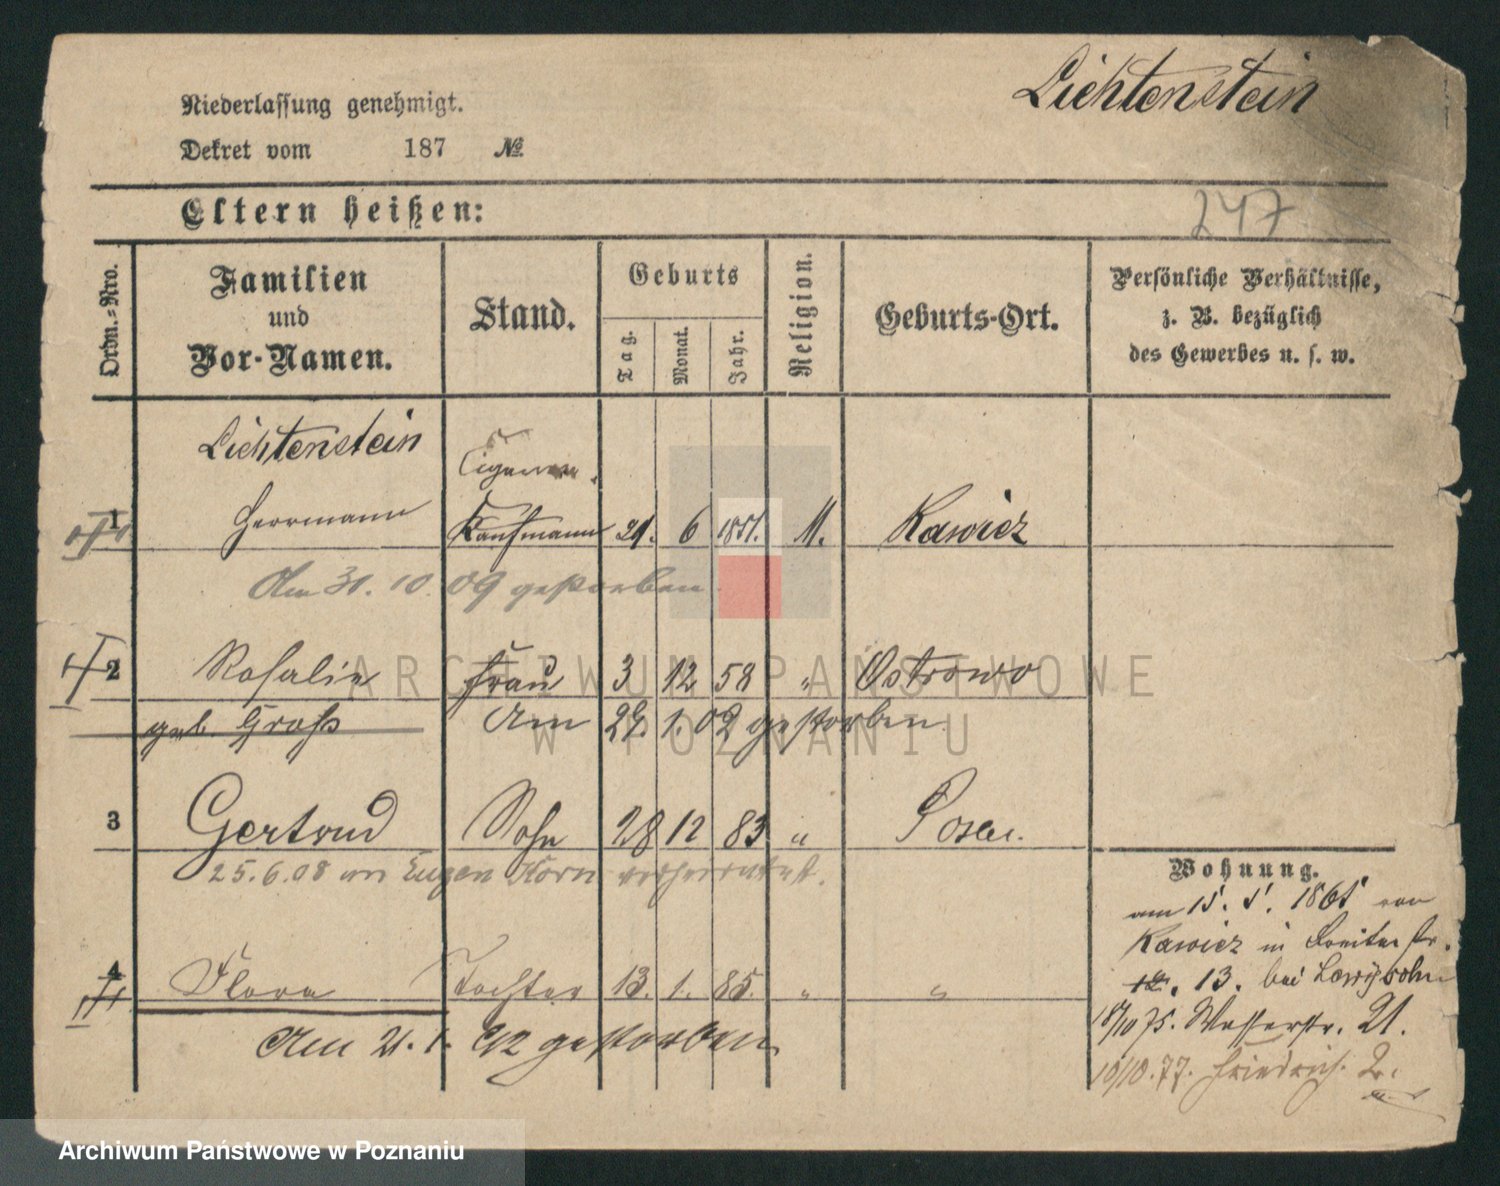 Lichtenstein
Niederlassung genehmigt.
Dekret vom 187 №
Eltern heißen:
247
Ordn.-Nro.
Familien
und
Vor-Namen.
Stand.
Geburts
Tag.
Monat.
Jahr.
Religion.
Geburts-Ort.
Persönliche Verhältnisse,
z. B. bezüglich
des Gewerbes u. s. w.
Lichtenstein
1 Herrmann Kaufmann 21. 6 1851. M. Rawicz
Am 31. 10. 09 gestorben.
2 Rosalie Frau 3 12 58 " Ostrowo
geb. Groß Am 29. 1. 02 gestorben
3 Gertrud Sohn 28 12 83 " Posen.
25.6.08 Eugen Korn verheiratet.
4 Flora Tochter 13. 1. 85. " "
Am 21. 1. 92 gestorben
Wohnung.
am 15. 5. 1865 von
Rawicz in Breitestr.
13. bei Lewysohn
18/10 75. Wasserstr. 21.
10/10. 77. Friedrich. 2.
ARCHIWUM PAŃSTWOWE
W POZNANIU
Archiwum Państwowe w Poznaniu